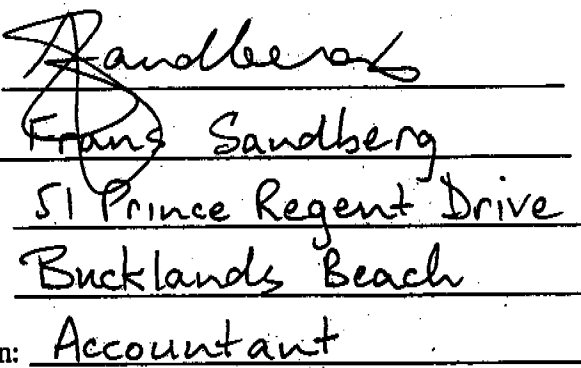 Sandberg
Frans Sandberg
51 Prince Regent Drive
Bucklands Beach
n: Accountant